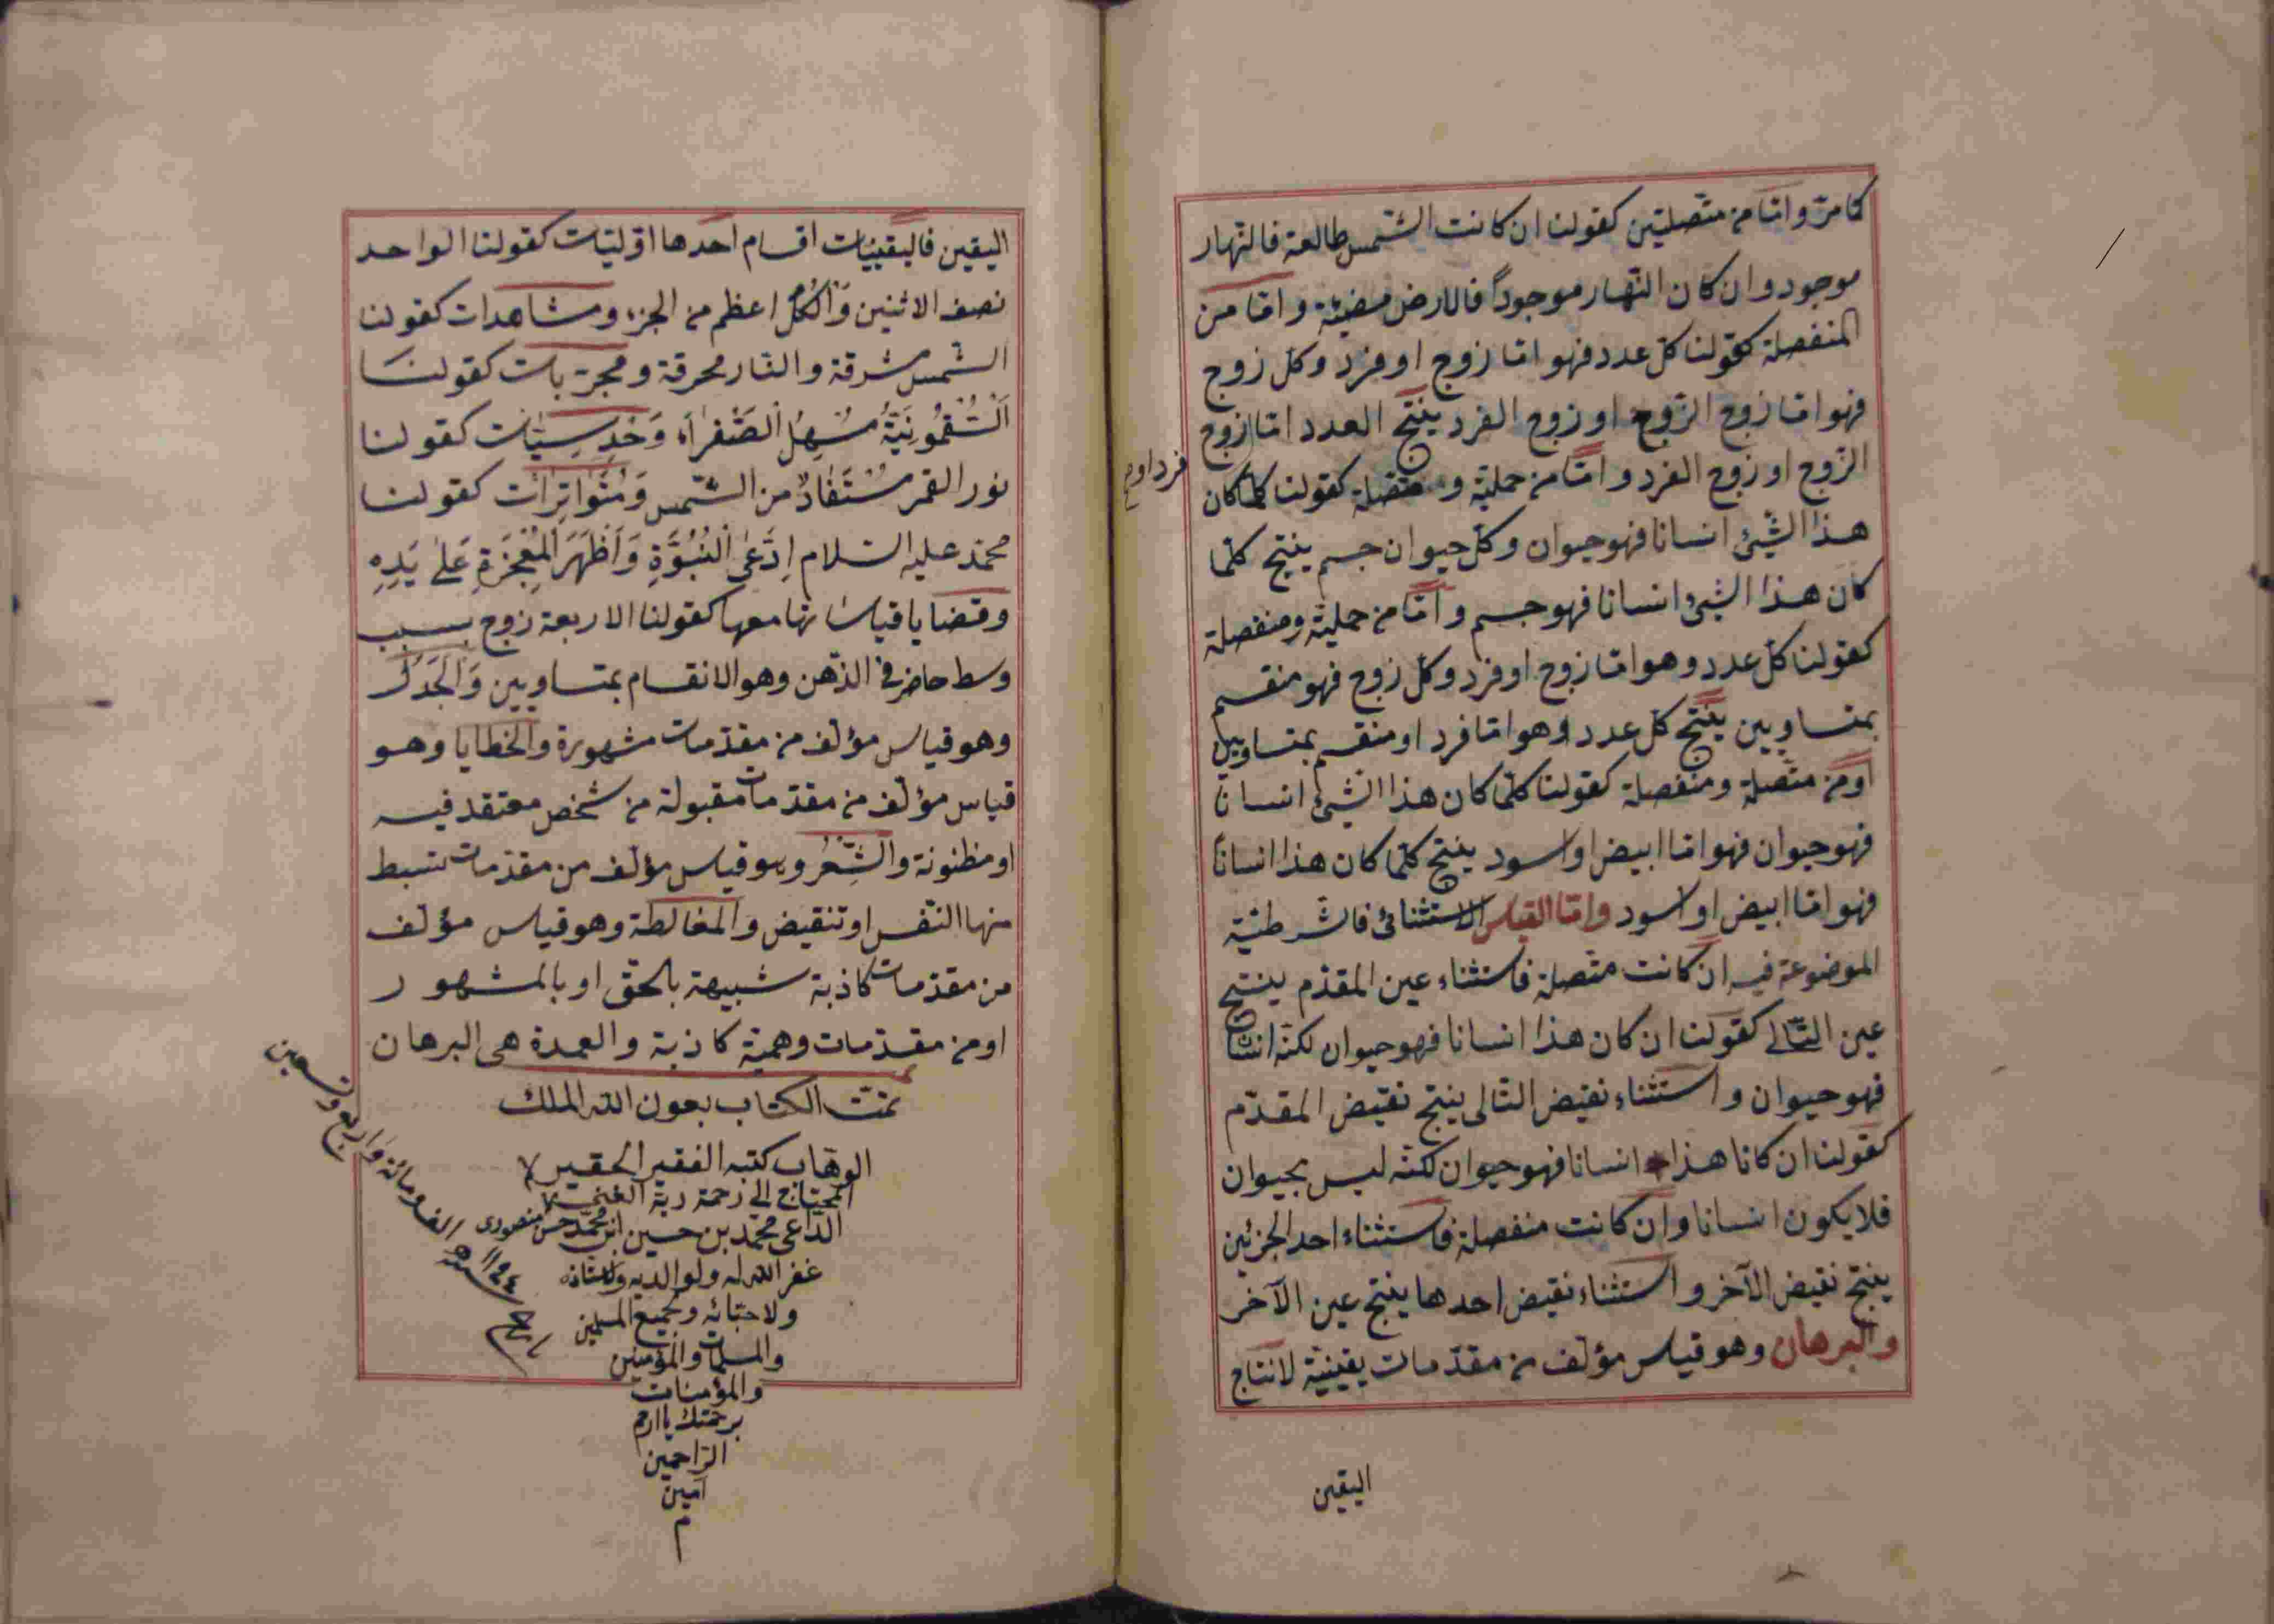 كما مرّ واما من متصلتين كقولنا ان كانت الشمس طالعة فالنهار
موجود وان كان النهار موجوداً فالارض مضيئة واما من
المنفصلة كقولنا كل عدد فهو اما زوج او فرد وكل زوج
فهو اما زوج الزوج او زوج الفرد ينتج العدد اما زوج
فرد او
الزوج او زوج الفرد واما من حملية و متصلة كقولنا كلما كان
هذا الشيئ انسانا فهو حيوان وكل حيوان جسم ينتج كلما
كان هذا الشيئ انسانا فهو جسم واما من حملية ومنفصلة
كقولنا كل عدد وهو اما زوج او فرد وكل زوج فهو منقسم
بمتساويين ينتج كل عدد وهو اما فرد او منقسم بمتساويين
او من متصلة ومنفصلة كقولنا كلما كان هذا الشيئ انسانا
فهو حيوان فهو اما ابيض او اسود ينتج كلما كان هذا انساناً
فهو اما ابيض او اسود واما القياس الاستثنائى فالشرطية
الموضوعة فيه ان كانت متصلة فاستثناء عين المقدم ينتج
عين التالى كقولنا ان كان هذا انسانا فهو حيوان لكنه انسا
فهو حيوان واستثناء نقيض التالى ينتج نقيض المقدّم
كقولنا ان كانا هذا انسانا فهو حيوان لكنه ليس بحيوان
فلا يكون انسانا وان كانت منفصلة فاستثناء احد الجزئين
ينتج نقيض الآخر واستثناء نقيض احدها ينتج عين الآخر
والبرهان وهو قياس مؤلف من مقدمات يقينية لانتاج
اليقين
اليقين فاليقينيات اقسام احدها اوليات كقولنا الواحد
نصف الاثنين وَالكلّ اعظم من الجزء ومشاهدات كقولنا
الشمس مشرقة والنار محرقة ومجربات كقولنا
اَلسُّقْمُونِيَّةُ مُسْهِلُ الصَّفْرَاء وَحَدسِيّات كقولنا
نور القمر مُسْتَفَادٌ من الشمس وَمُتَوَاتِرَات كقولنا
محمد عليه السلام اِدَّعَى النُّبُوَّةِ وَاَظْهَرَ الْمُعْجِزَةِ عَلىٰ يَدِهِ
وقضايا قياساتها معها كقولنا الاربعة زوج بسبب
وسط حاضر فى الذهن وهو الانقسام بمتساويين وَالْجَدَل
وهو قياس مؤلف من مقدمات مشهورة والخطايا وهو
قياس مؤلف من مقدمات مقبولة من شخص معتقد فيه
او مظنونة والشِّعْرُ وهو قياس مؤلف من مقدمات تنبسط
منها النفس او تنقيض والمغالطة وهو قياس مؤلف
من مقدمات كاذبة شبيهة بالحق او بالمشهور
او من مقدمات وهمية كاذبة والعمدة هى البرهان
تمت الكتاب بعون الله الملك
الوهاب كتبه الفقير الحقير
المحتاج الى رحمة ربه الغنى
الداعى محمد بن حسين ابن محمد حسن منصورى
غفر الله له ولوالديه ولاستاذه
ولاحبّائه ولجميع المسلمين
والمسلمات والمؤمنين
والمؤمنات
برحمتك يا ارحم
الراحمين
آمين
م
سنه ١١٩٤ الف ومائة واربع وتسعين